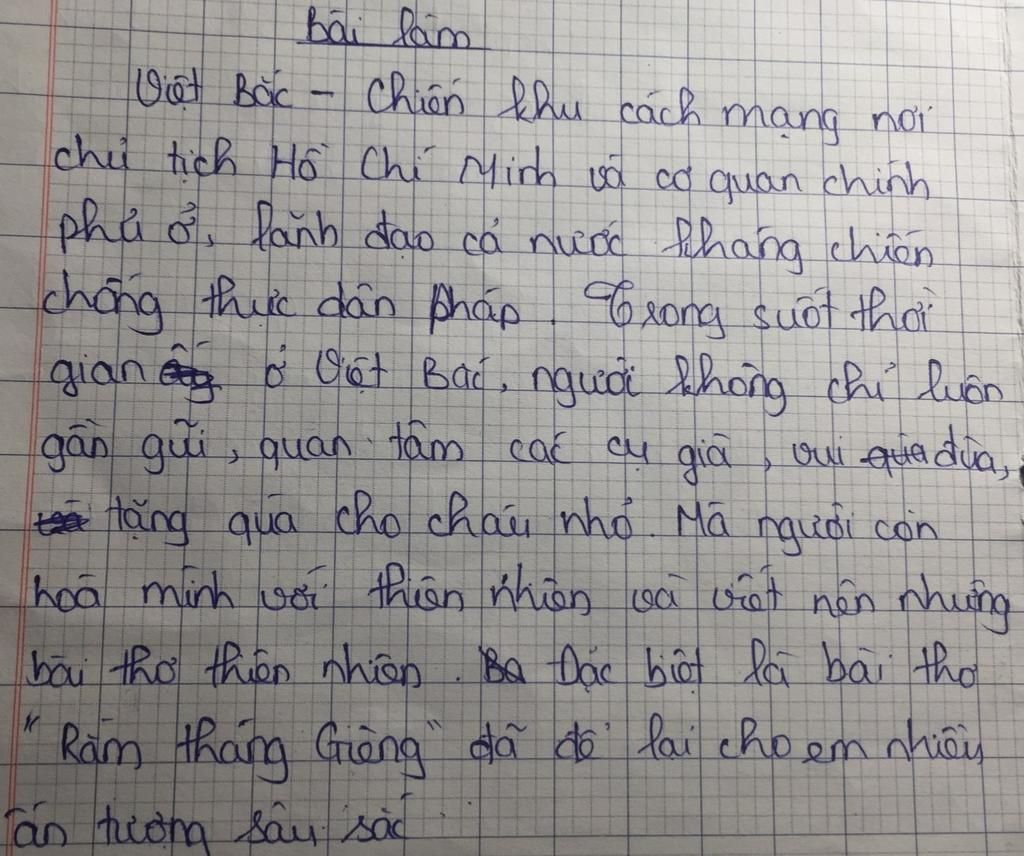 Bài làm
Việt Bắc - Chiến khu cách mạng nơi
chủ tịch Hồ Chí Minh và cơ quan chính
phủ ở, lãnh đạo cả nước kháng chiến
chống thực dân pháp. Trong suốt thời
gian ở Việt Bắc, người không chỉ luôn
gần gũi, quan tâm các cụ già, vui đùa,
tặng quà cho cháu nhỏ. Mà người còn
hoà mình với thiên nhiên và viết nên những
bài thơ thiên nhiên. Đặc biệt là bài thơ
"Rằm tháng Giêng" đã để lại cho em nhiều
ấn tượng sâu sắc.